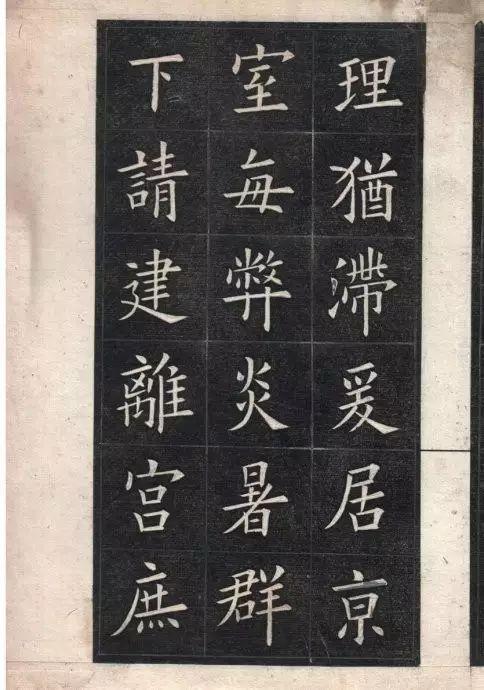 理猶滯爰居京
室每弊炎暑群
下請建離宮庶